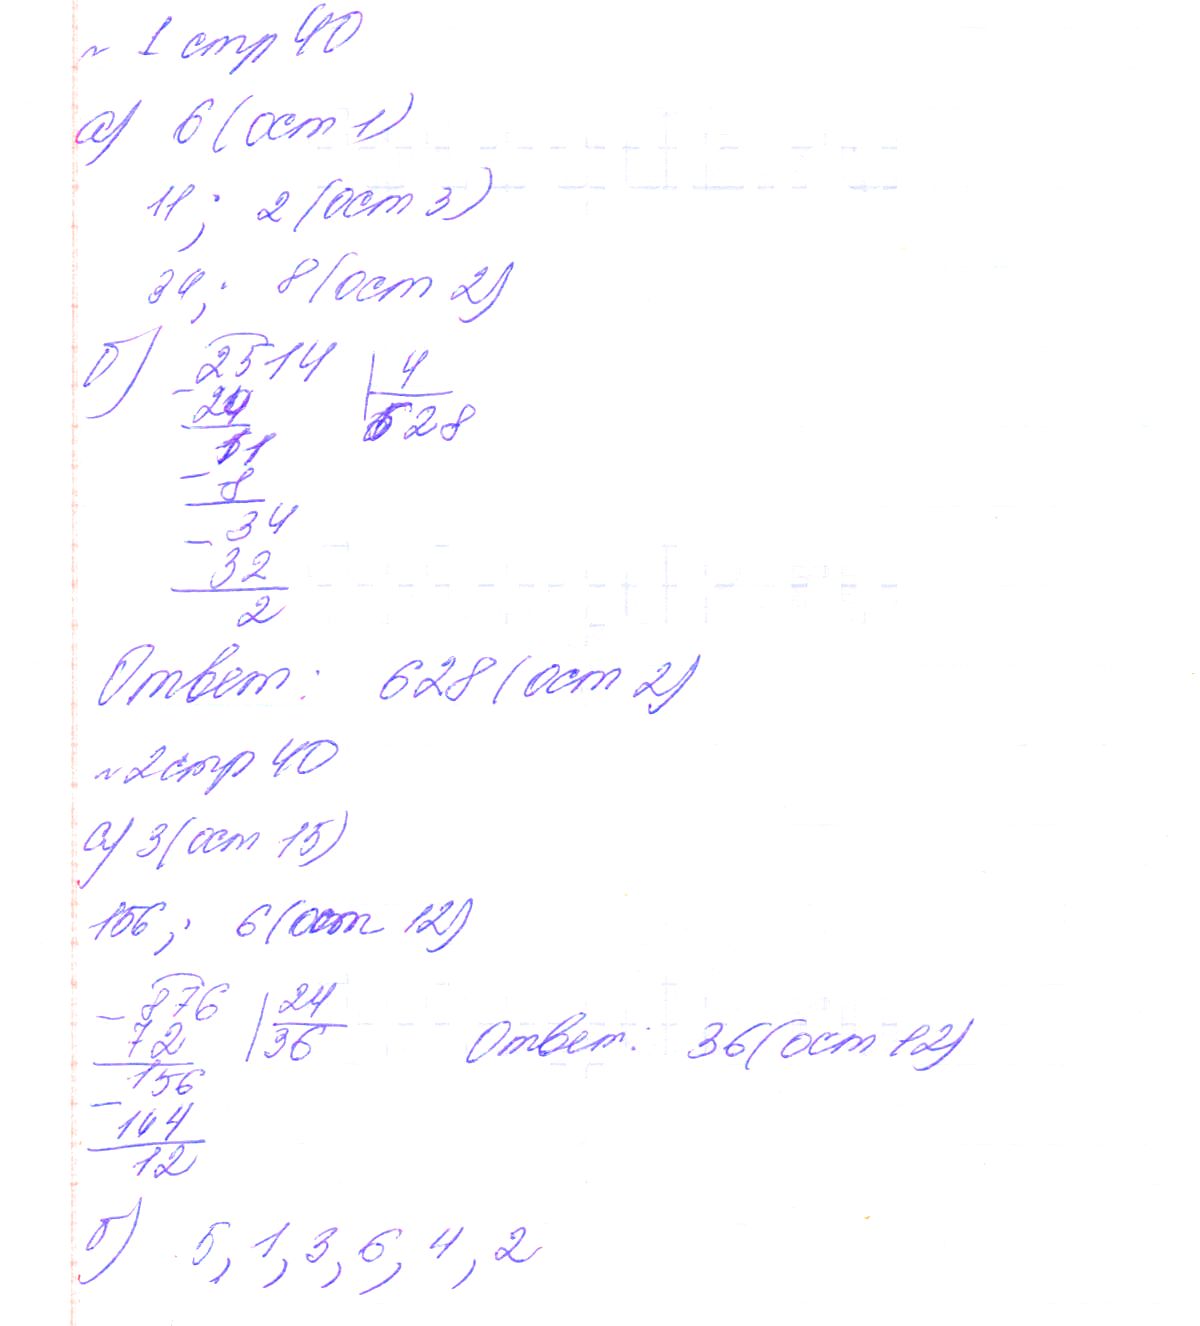 ~ 1 стр 40
а) 6 (ост 1)
11; 2 (ост 3)
34; 8 (ост 2)
б) 2514 | 4
- 24 628
11
- 8
- 34
32
2
Ответ: 628 (ост 2)
~ 2 стр 40
а) 3 (ост 15)
156; 6 (ост 12)
- 876 | 24
72 36 Ответ: 36 (ост 12)
- 156
144
12
б) 5, 1, 3, 6, 4, 2